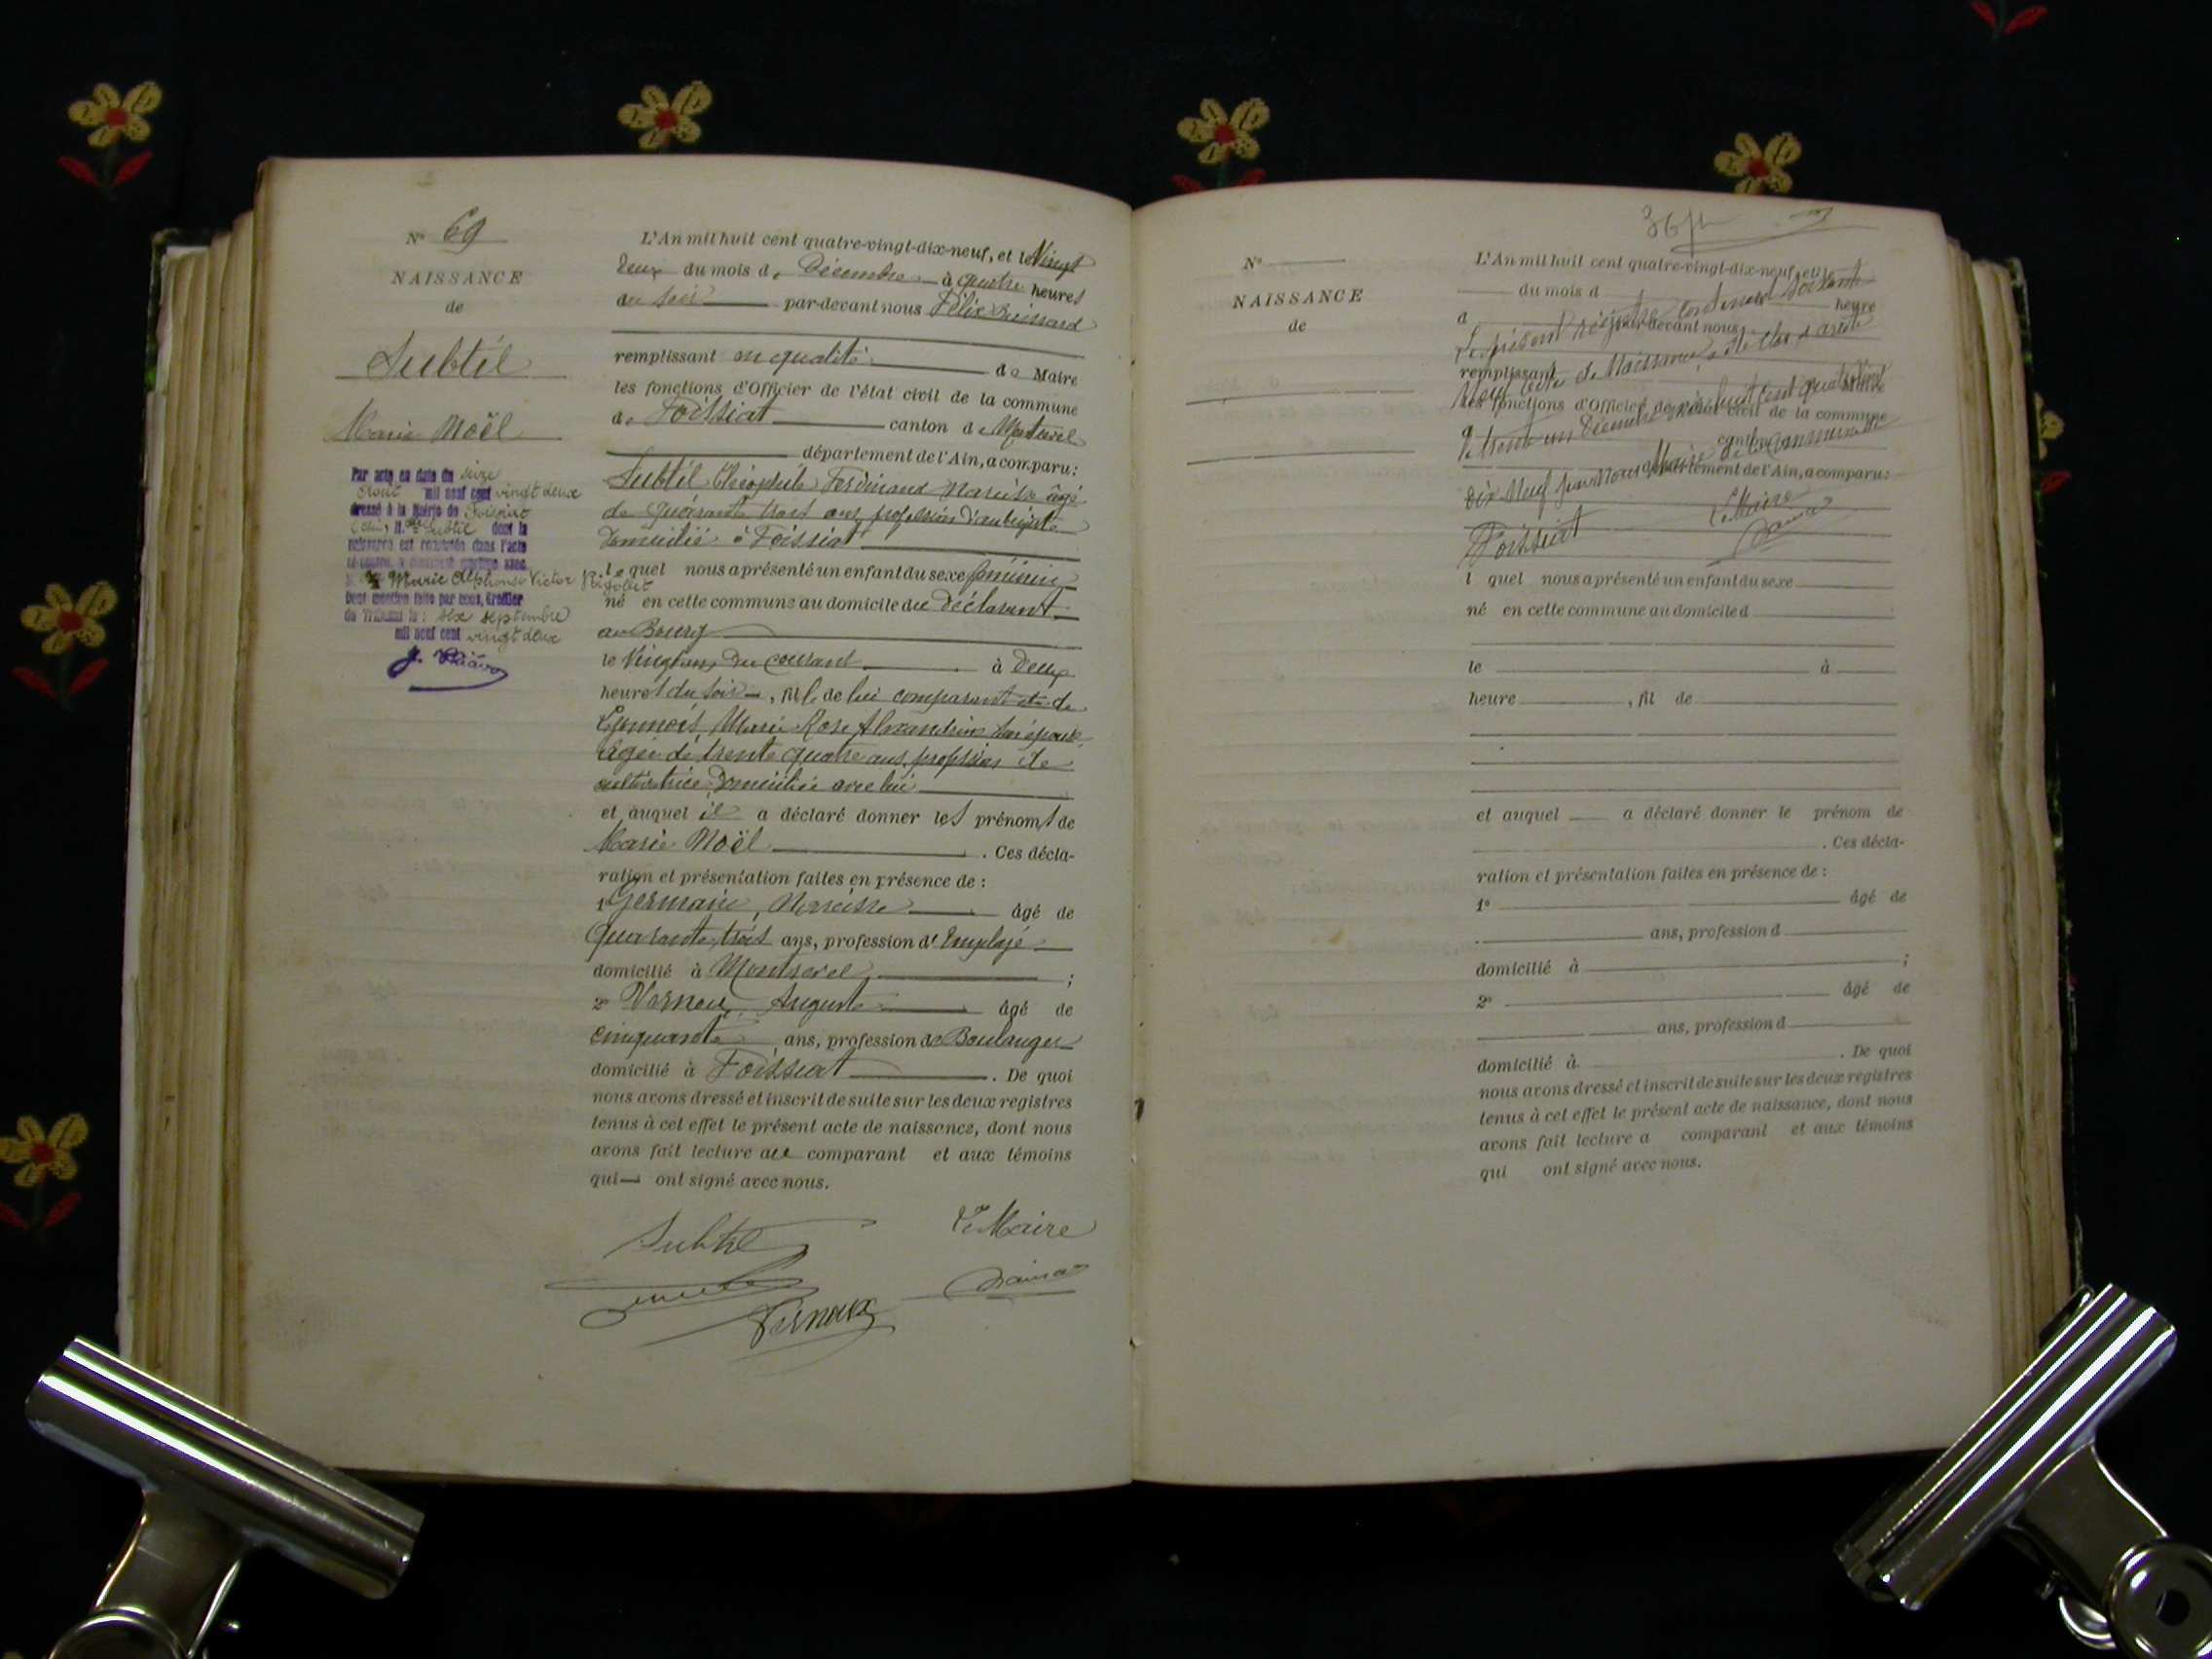 N° 69
NAISSANCE
de
Subtil
Marie Noël
Par acte en date du seize
Août mil neuf cent vingt deux
dressé à la Mairie de Foissiat
(Ain), M. Subtil dont la
naissance est constatée dans l'acte
ci-contre, a contracté mariage avec
Marie Alphonse Victor
Dont mention faite par nous, Greffier
du Tribunal le : six septembre
mil neuf cent vingt deux
L'An mil huit cent quatre-vingt-dix-neuf, et le Vingt
deux du mois de Décembre à quatre heures
du soir par-devant nous Félix
remplissant en qualité de Maire
les fonctions d'Officier de l'état civil de la commune
de Foissiat canton de Montrevel
département de l'Ain, a comparu :
Subtil Théophile Ferdinand Narcisse âgé
de quarante trois ans, profession d'aubergiste
domicilié à Foissiat
lequel nous a présenté un enfant du sexe féminin
né en cette commune au domicile du déclarant
au Bourg
le Vingt un du courant à deux
heures du soir, fille de lui comparant et de
Marie Rose Alexandrine son épouse
âgée de trente quatre ans, profession de
cultivatrice domiciliée avec lui
et auquel il a déclaré donner les prénoms de
Marie Noël. Ces décla-
ration et présentation faites en présence de :
1° Germain, Narcisse âgé de
quarante trois ans, profession d'Employé
domicilié à Montrevel ;
2° Vernoux, Auguste âgé de
cinquante ans, profession de Boulanger
domicilié à Foissiat. De quoi
nous avons dressé et inscrit de suite sur les deux registres
tenus à cet effet le présent acte de naissance, dont nous
avons fait lecture au comparant et aux témoins
qui ont signé avec nous.
Subtil Le Maire
Vernoux
N°
NAISSANCE
de
L'An mil huit cent quatre-vingt-dix-neuf, et le
du mois d
à heure
par-devant nous
Le présent registre contenant soixante
remplissant
Neuf actes de Naissance, a été clos et arrêté
les fonctions d'Officier de l'état civil de la commune
le trente un Décembre mil huit cent quatre vingt
d canton d
département de l'Ain, a comparu :
dix Neuf par Nous Maire de la commune de
Foissiat Le Maire
l quel nous a présenté un enfant du sexe
né en cette commune au domicile d
le à
heure , fil de
et auquel a déclaré donner le prénom de
. Ces décla-
ration et présentation faites en présence de :
1° âgé de
ans, profession d
domicilié à ;
2° âgé de
ans, profession d
domicilié à . De quoi
nous avons dressé et inscrit de suite sur les deux registres
tenus à cet effet le présent acte de naissance, dont nous
avons fait lecture a comparant et aux témoins
qui ont signé avec nous.